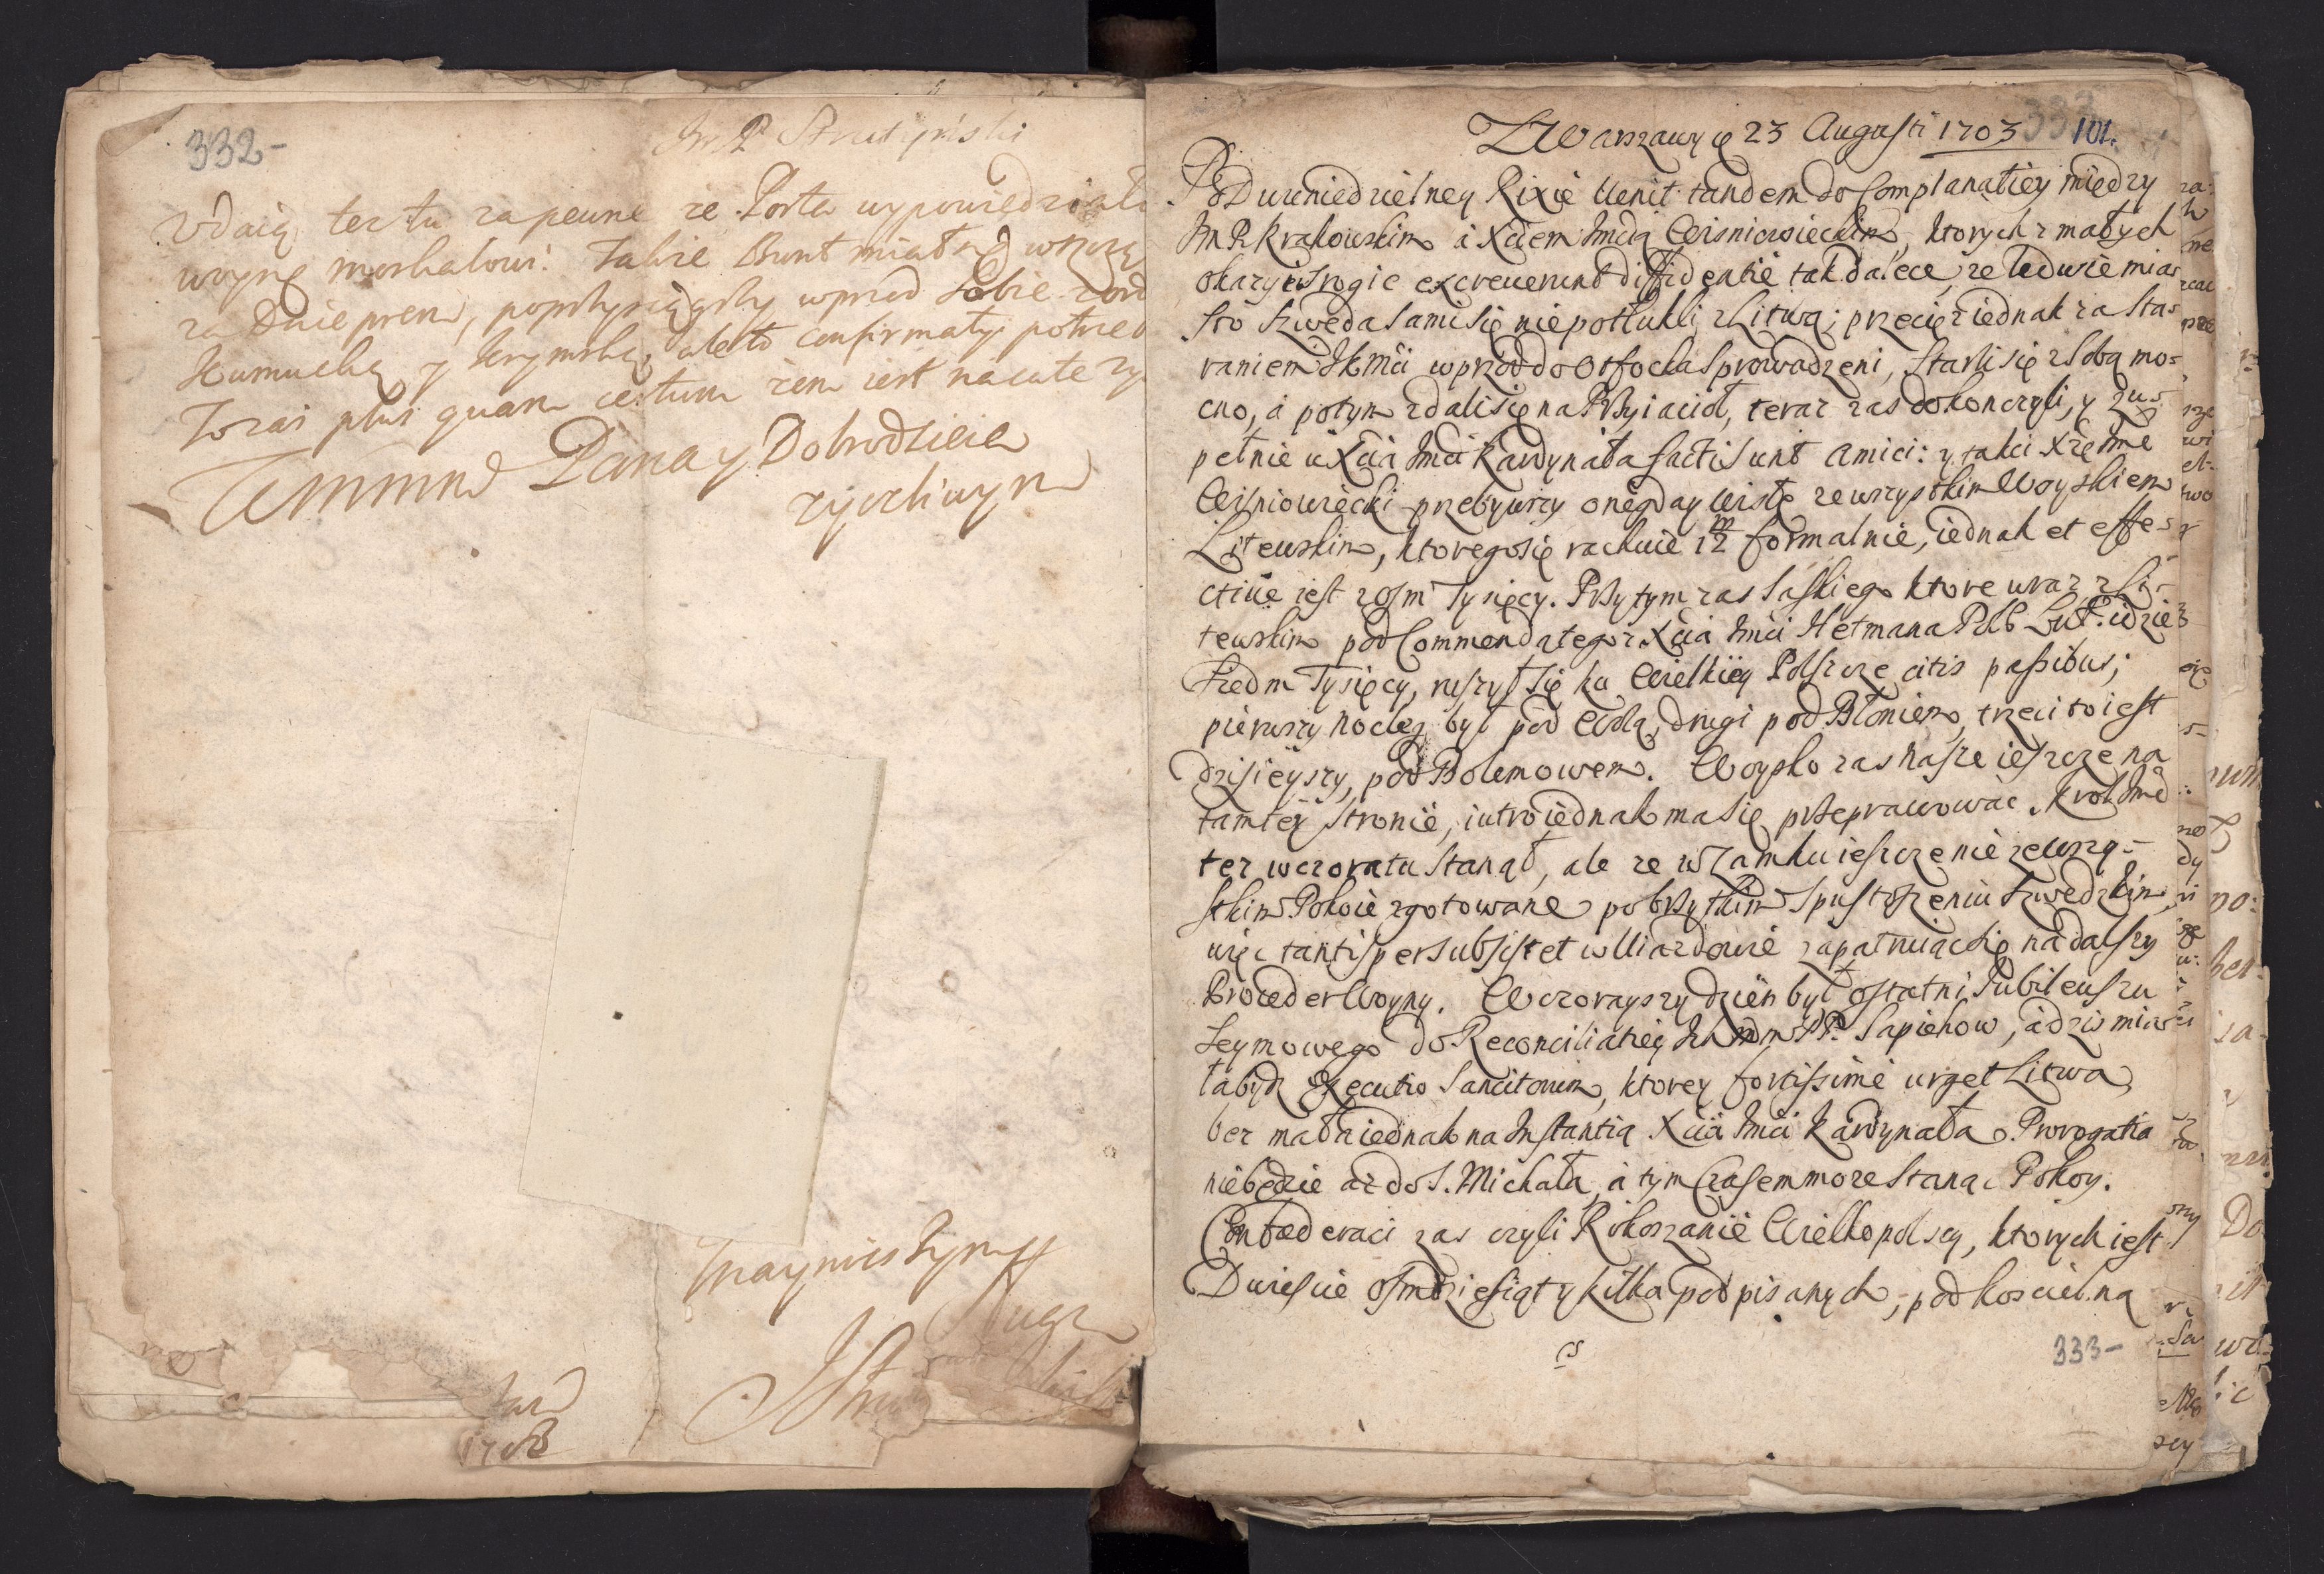 332-
Im P Strutyński
Vdaią tez tu za pewne ze Porta wypowiedziała
woynę moskalowi. Takze Bunt miał się wszcząć
za Dnieprem, poprzysiągszy wprzod sobie
y Krymską, ale to confirmaty potrzeb
Toraz plus quam certum rem iest
Pana y Dobrodzieia
zyczliwym
Naynizszym
Sługa
1703
Z Warszawy d 23 Augusti 1703 101.
Po Dwuniedzielney Rixie venit tandem do Complanatiey między
Im P. Krakowskim a Xciem Imcią Wisniowieckim, ktorych z małych
okazyi srogie excreverunt diffidentie tak dalece, ze ledwie mia-
sto Szweda sami się niepotłukli z Litwą; przecięz iednak za sta-
raniem IKMci wprzod do Otfocka sprowadzeni, starli się z sobą mo-
cno, á potym zdali się na Przyiacioł, teraz zas dokonczyli, y zu-
pełnie u Xcia Imci Kardynała facti sunt amici: y taki Xżę Ime
Wisniowiecki przebywszy onegday Wisłę ze wszystkim Woyskiem
Litewskim, ktorego się rachuie 12 m formalnie, iednak et effe-
ctive iest z osm Tysięcy. Przy tym zas Saskiego ktore wraz z Li-
tewskim pod Commendą tegoz Xcia Imci Hetmana Pol: Lit: idzie
Siedm Tysięcy, ruszył się ku Wielkiey Polszcze citis passibus;
pierwszy nocleg był pod Wolą, drugi pod Błoniem, trzeci to iest
dzisieyszy, pod Bolemowem. Woysko zas nasze ieszcze na
tamtey stronie, iutro iednak ma się przeprawować. Krol Imc
tez wczora tu stanął, ale ze w Zamku ieszcze nie ze wszy-
stkim Pokoie zgotowane po brzytkim spustoszeniu Szwedzkim,
więc tantisper subsistet w Uiazdowie zapatruiąc się na dalszy
Proceder Woyny. Wczorayszy dzien był ostatni Iubileuszu
Seymowego do Reconciliatiey Ich mm PP. Sapiehow, á dzis mia-
ła bydz Executio Sancitorum, ktorey fortissime urget Litwa,
bez mała iednak na Instantią Xcia Imci Kardynała Prorogatia
niebędzie az do S. Michała, á tym czasem moze stanąc Pokoy.
Confœderaci zas czyli Rokoszanie Wielkopolscy, ktorych iest
Dwiescie osmdziesiąt y kilka podpisanych, pod koscielną
333-